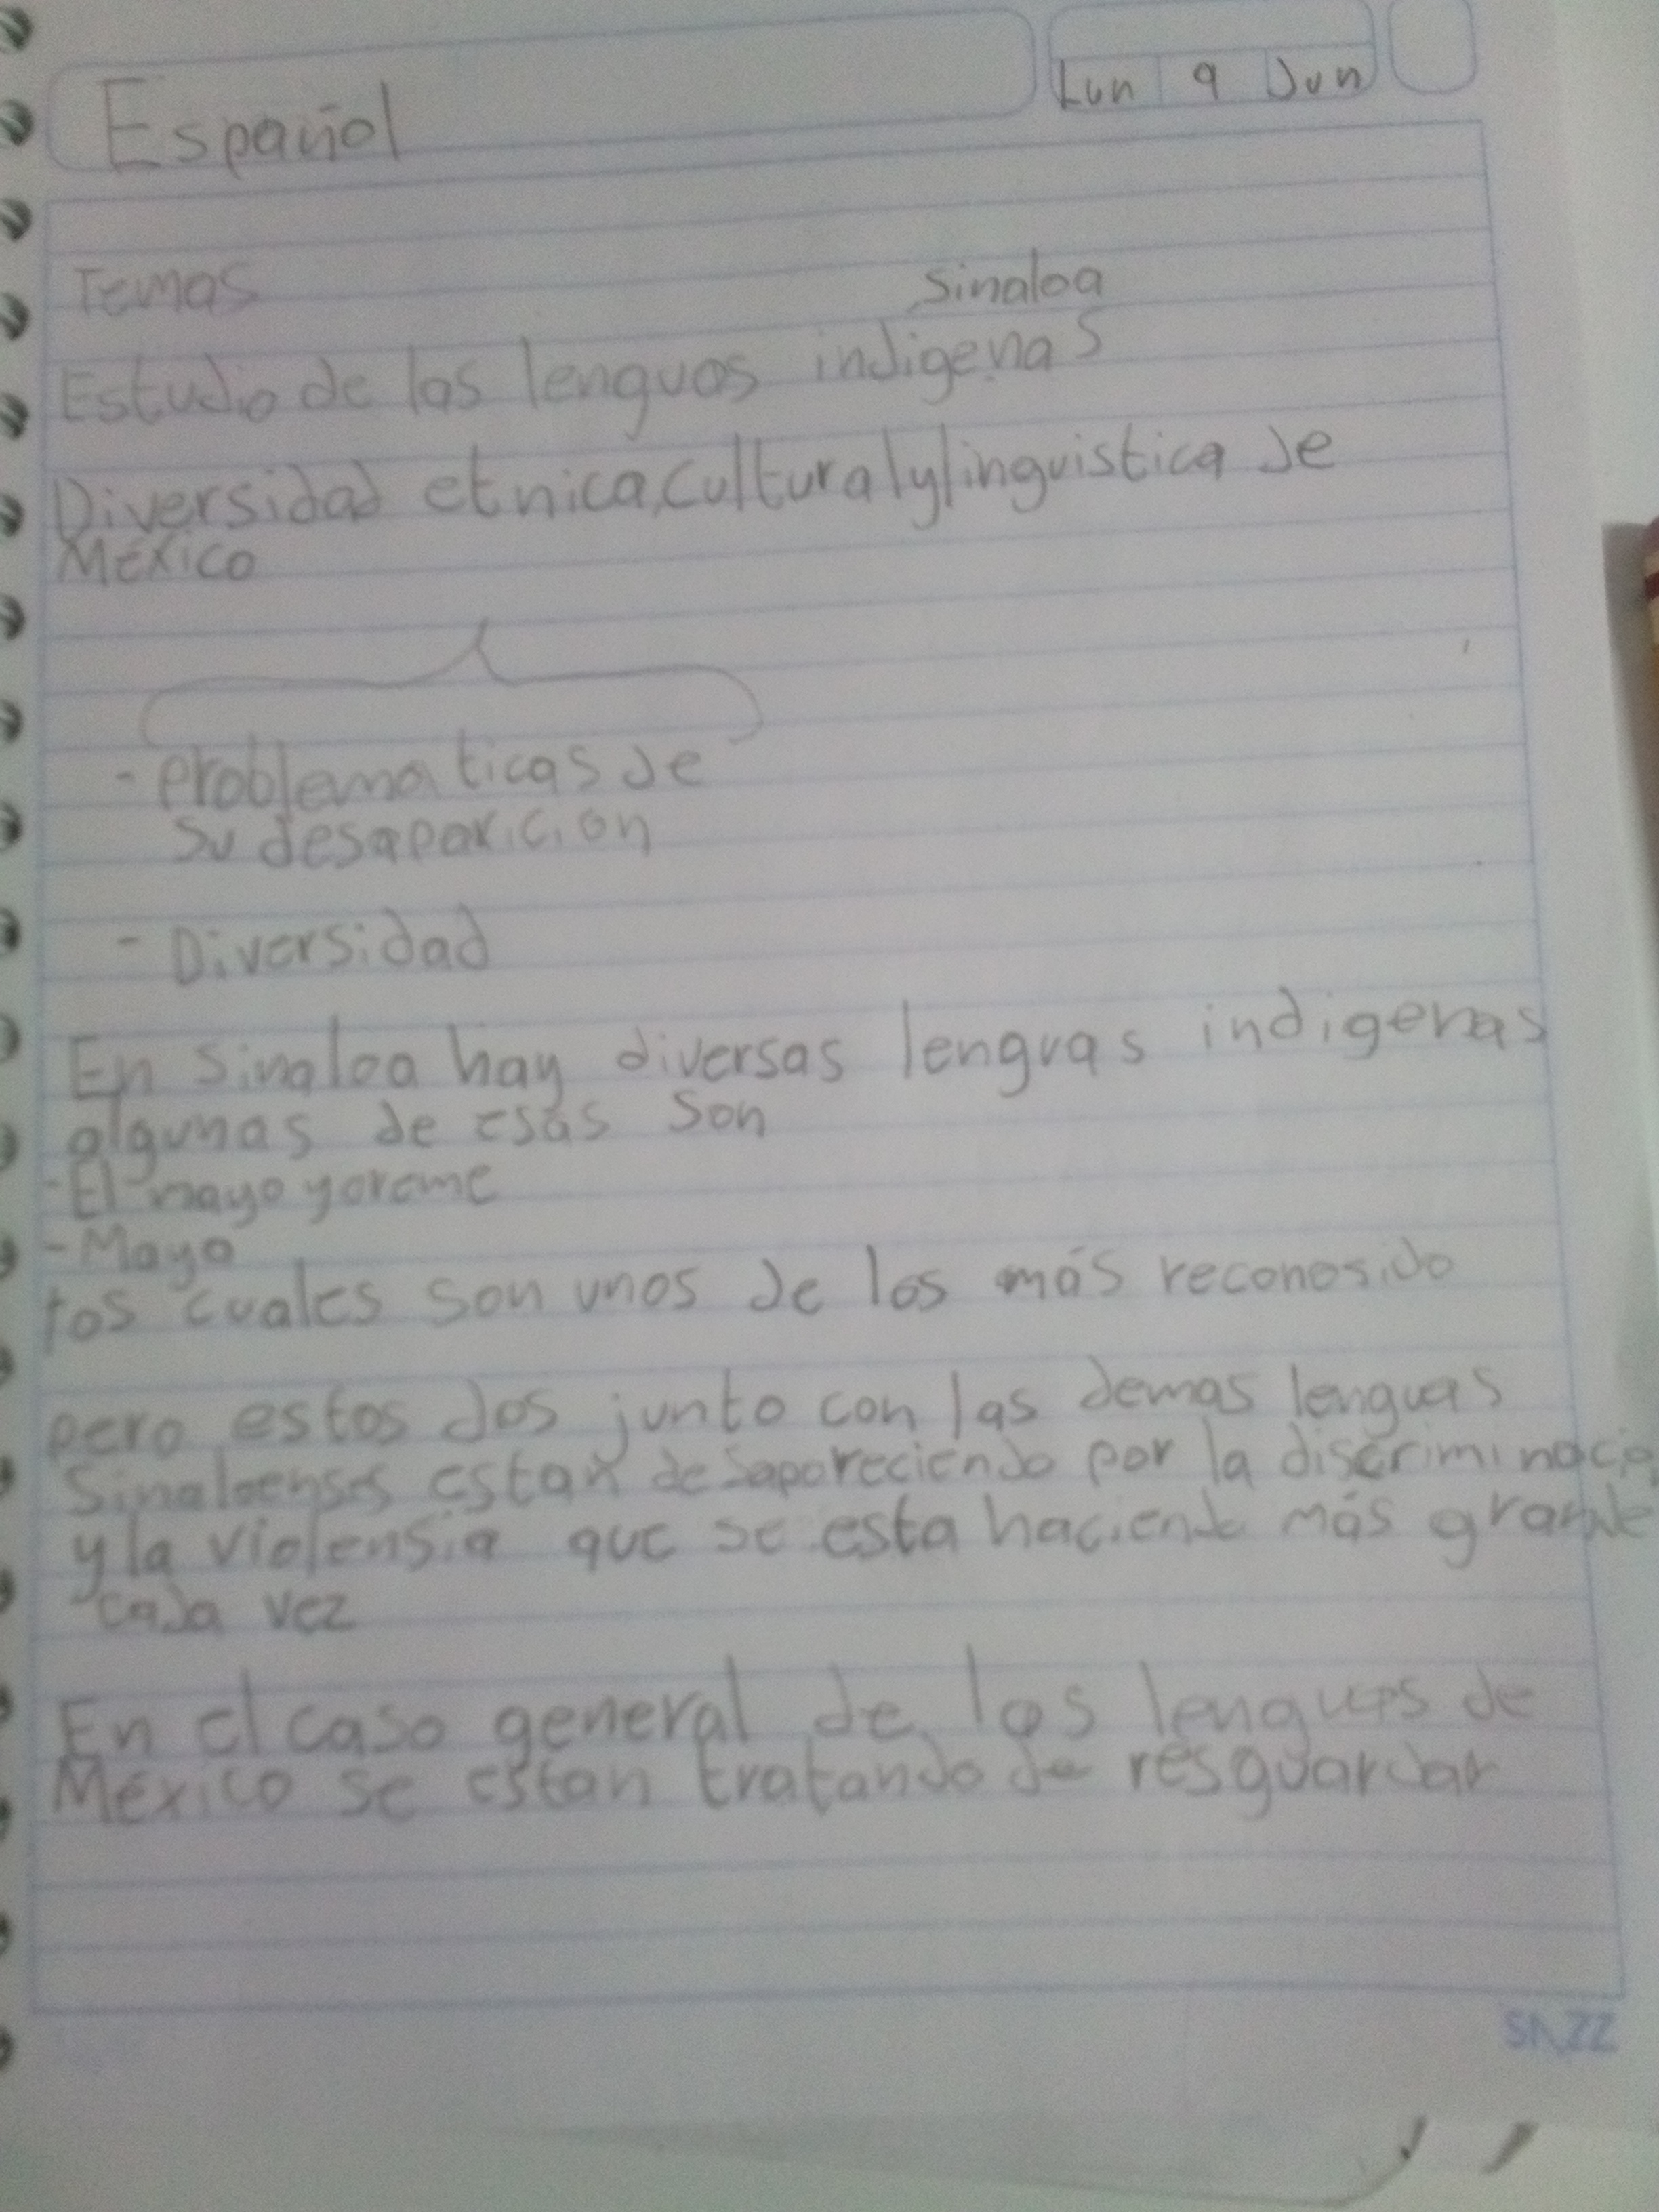 Español
Lun 9 Jun
Temas
Sinaloa
Estudio de las lenguas indigenas
Diversidad etnica, cultural y linguistica de
México
- Problematicas de
su desaparicion
- Diversidad
En Sinaloa hay diversas lenguas indigenas
algunas de esas son
- El mayo yoreme
- Mayo
los cuales son unos de los más reconosido
pero estos dos junto con las demas lenguas
Sinaloenses estan desapareciendo por la discriminacio
y la violensia que se esta haciendo más grande
cada vez
En el caso general de las lenguas de
México se estan tratando de resguardar